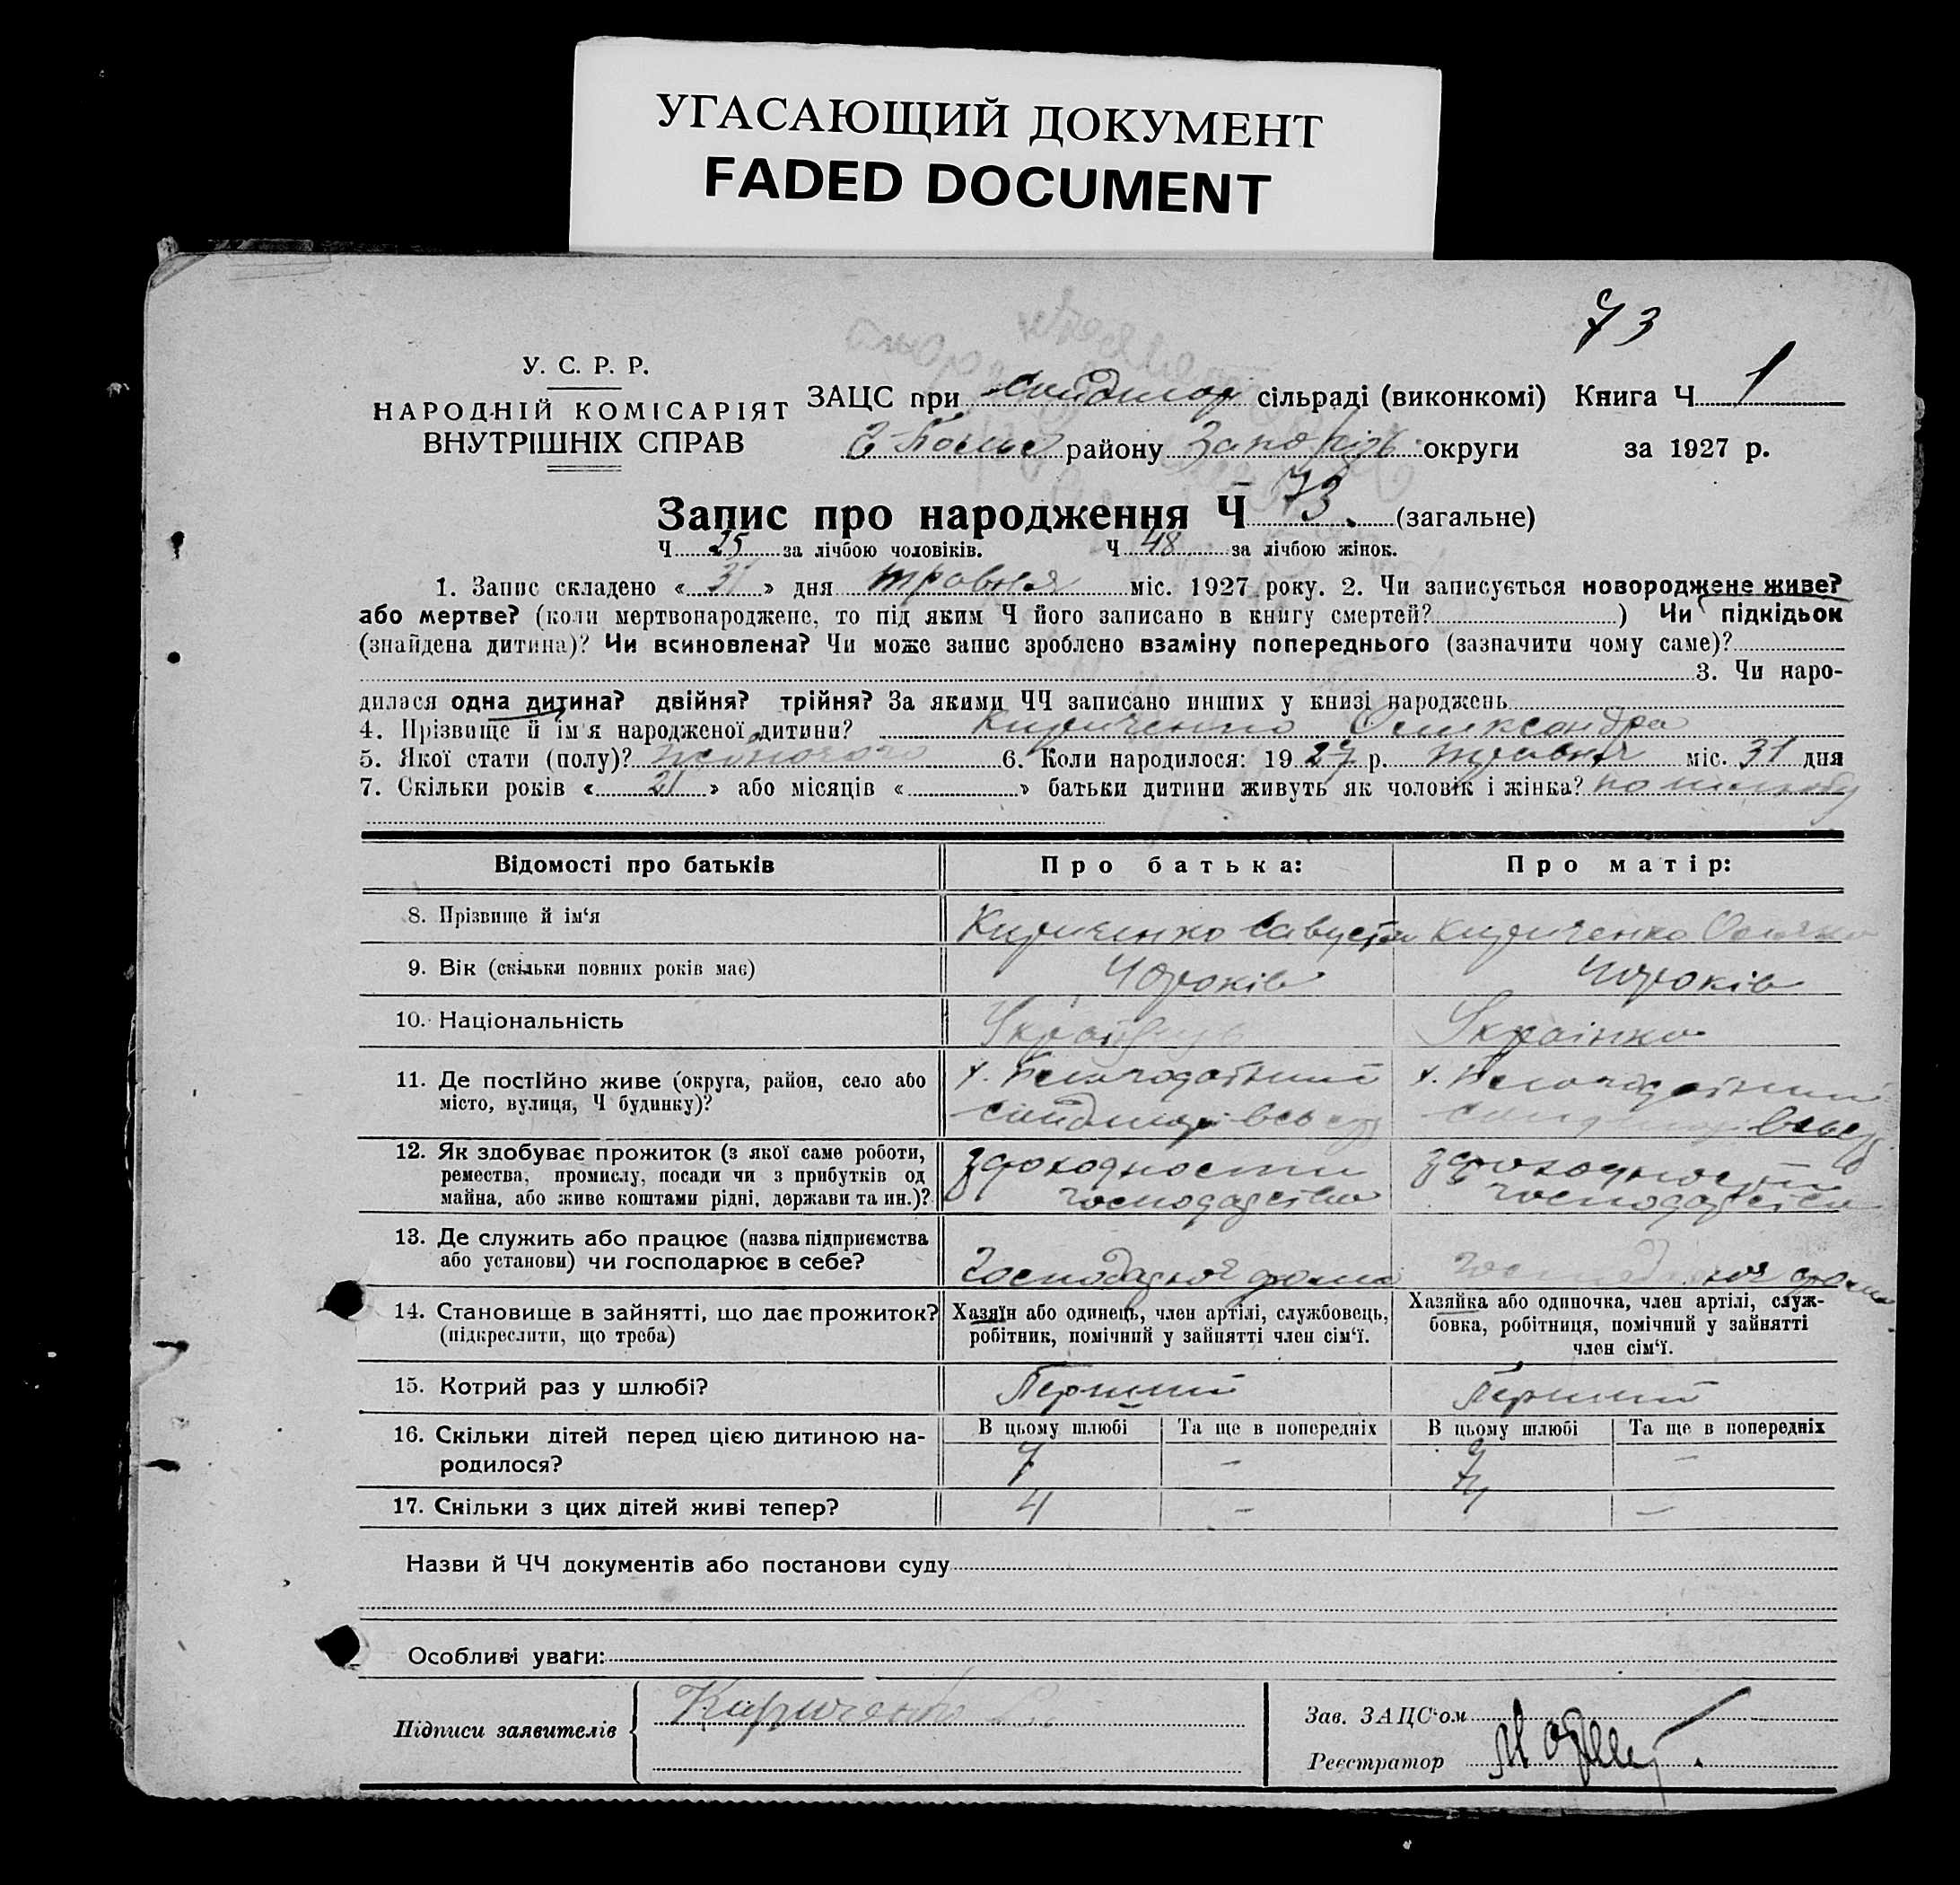 УГАСАЮЩИЙ ДОКУМЕНТ
FADED DOCUMENT
73
У. С. Р. Р.
НАРОДНІЙ КОМІСАРІЯТ
ВНУТРІШНІХ СПРАВ
ЗАЦС при сільраді (виконкомі) Книга Ч 1
району Запоріз округи за 1927 р.
Запис про народження Ч 73. (загальне)
Ч 25 за лічбою чоловіків. Ч 48 за лічбою жінок.
1. Запис складено « 31 » дня травня міс. 1927 року. 2. Чи записується новороджене живе?
або мертве? (коли мертвонароджене, то під яким Ч його записано в книгу смертей? ) Чи підкідьок
(знайдена дитина)? Чи всиновлена? Чи може запис зроблено взаміну попереднього (зазначити чому саме)?
3. Чи наро-
дилася одна дитина? двійня? трійня? За якими ЧЧ записано инших у книзі народжень
4. Прізвище й ім'я народженої дитини? Кириченко Олександра
5. Якої стати (полу)? жіночого 6. Коли народилося: 1927 р. травня міс. 31 дня
7. Скільки років « 21 » або місяців « » батьки дитини живуть як чоловік і жінка? по шлюбу
Відомості про батьків Про батька: Про матір:
8. Прізвище й ім‘я Кириченко Кириченко
9. Вік (скільки повних років має) 40 років 40 років
10. Національність Українець Українка
11. Де постійно живе (округа, район, село або
місто, вулиця, Ч будинку)?
12. Як здобуває прожиток (з якої саме роботи,
ремества, промислу, посади чи з прибутків од
майна, або живе коштами рідні, держави та ин.)?
господарства господарства
13. Де служить або працює (назва підприємства
або установи) чи господарює в себе?
14. Становище в зайнятті, що дає прожиток?
(підкреслити, що треба)
Хазяїн або одинець, член артілі, службовець,
робітник, помічний у зайнятті член сім‘ї.
Хазяйка або одиночка, член артілі, служ-
бовка, робітниця, помічний у зайнятті
член сім‘ї.
15. Котрий раз у шлюбі? Перший Перший
16. Скільки дітей перед цією дитиною на-
родилося?
В цьому шлюбі Та ще в попередніх В цьому шлюбі Та ще в попередніх
7 – 7 –
17. Скільки з цих дітей живі тепер? 4 – 4 –
Назви й ЧЧ документів або постанови суду
Особливі уваги:
Підписи заявителів Кириченко
Зав. ЗАЦС‘ом
Реєстратор